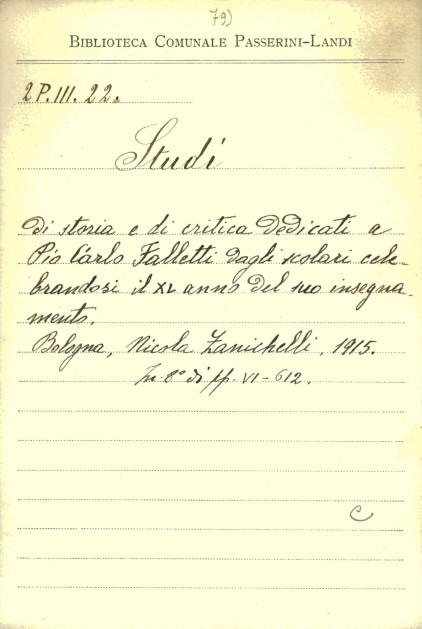 79)
BIBLIOTECA COMUNALE PASSERINI-LANDI
2P.III.22.
Studi
di storia e di critica dedicati a
Pio Carlo Falletti dagli scolari cele-
brandosi il XL anno del suo insegna-
mento.
Bologna, Nicola Zanichelli, 1915.
In 8° di pp. VI-612.
C